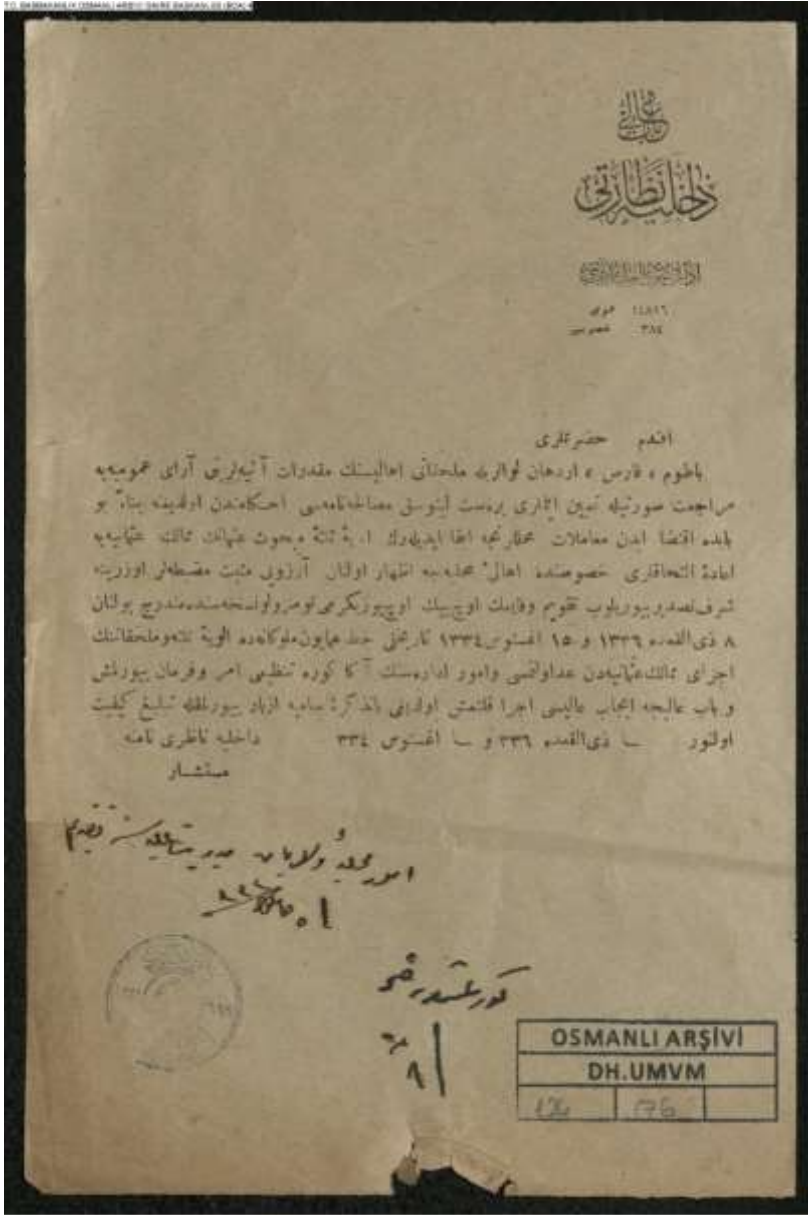 T.C. BAŞBAKANLIK OSMANLI ARŞİVİ DAİRE BAŞKANLIĞI (BOA)
باب عالی
داخلیه نظارتی
١٤٨١٦ عمومی
٣٨٤ خصوصی
افندم حضرتلری
باطوم ، قارص ، اردهان لوالریله ملحقاتی اهالیسنك مقدرات آتیه‌لرینی آرای عمومیه‌یه
مراجعت صورتیله تعیین ایتملری برەست لیتوسق مصالحه‌نامه‌سی احکامندن اولدیغنه بناءً بو
بابده اقتضا ایدن معاملات محللرنجه ایفا ایدیله‌رك الویهٔ ثلثهٔ مبحوث عنهانك ممالك عثمانیه‌یه
اعادهٔ التحاقلری خصوصنده اهالیٔ محلیه‌جه اظهار اولنان آرزویی مثبت مضبطه‌لر اوزرینه
شرفصدیر بیوریلوب تقویم وقایعك اوچ‌بیك اوچیوزیکرمی نومرولو نسخه‌سنده مندرج بولنان
٨ ذی القعده ١٣٣٦ و ١٥ اغستوس ١٣٣٤ تاریخلی خط همایون ملوکانه‌ده الویهٔ ثلثه و ملحقاتنك
اجزای ممالك عثمانیه‌دن عد اولنمسی وامور اداره‌سنك آکا کوره تنظیمی امر وفرمان بیورلمش
و باب عالیجه ایجاب عالیسی اجرا قلنمش اولدیغی بالتذکرهٔ سامیه ازبار بیورلمغله تبلیغ کیفیت
اولنور ذی القعده ٣٣٦ و اغستوس ٣٣٤ داخلیه ناظری نامنه
مستشار
امور محلیهٔ ولایات مدیریت
کورلمشدر
OSMANLI ARŞİVİ
DH.UMVM
124 176